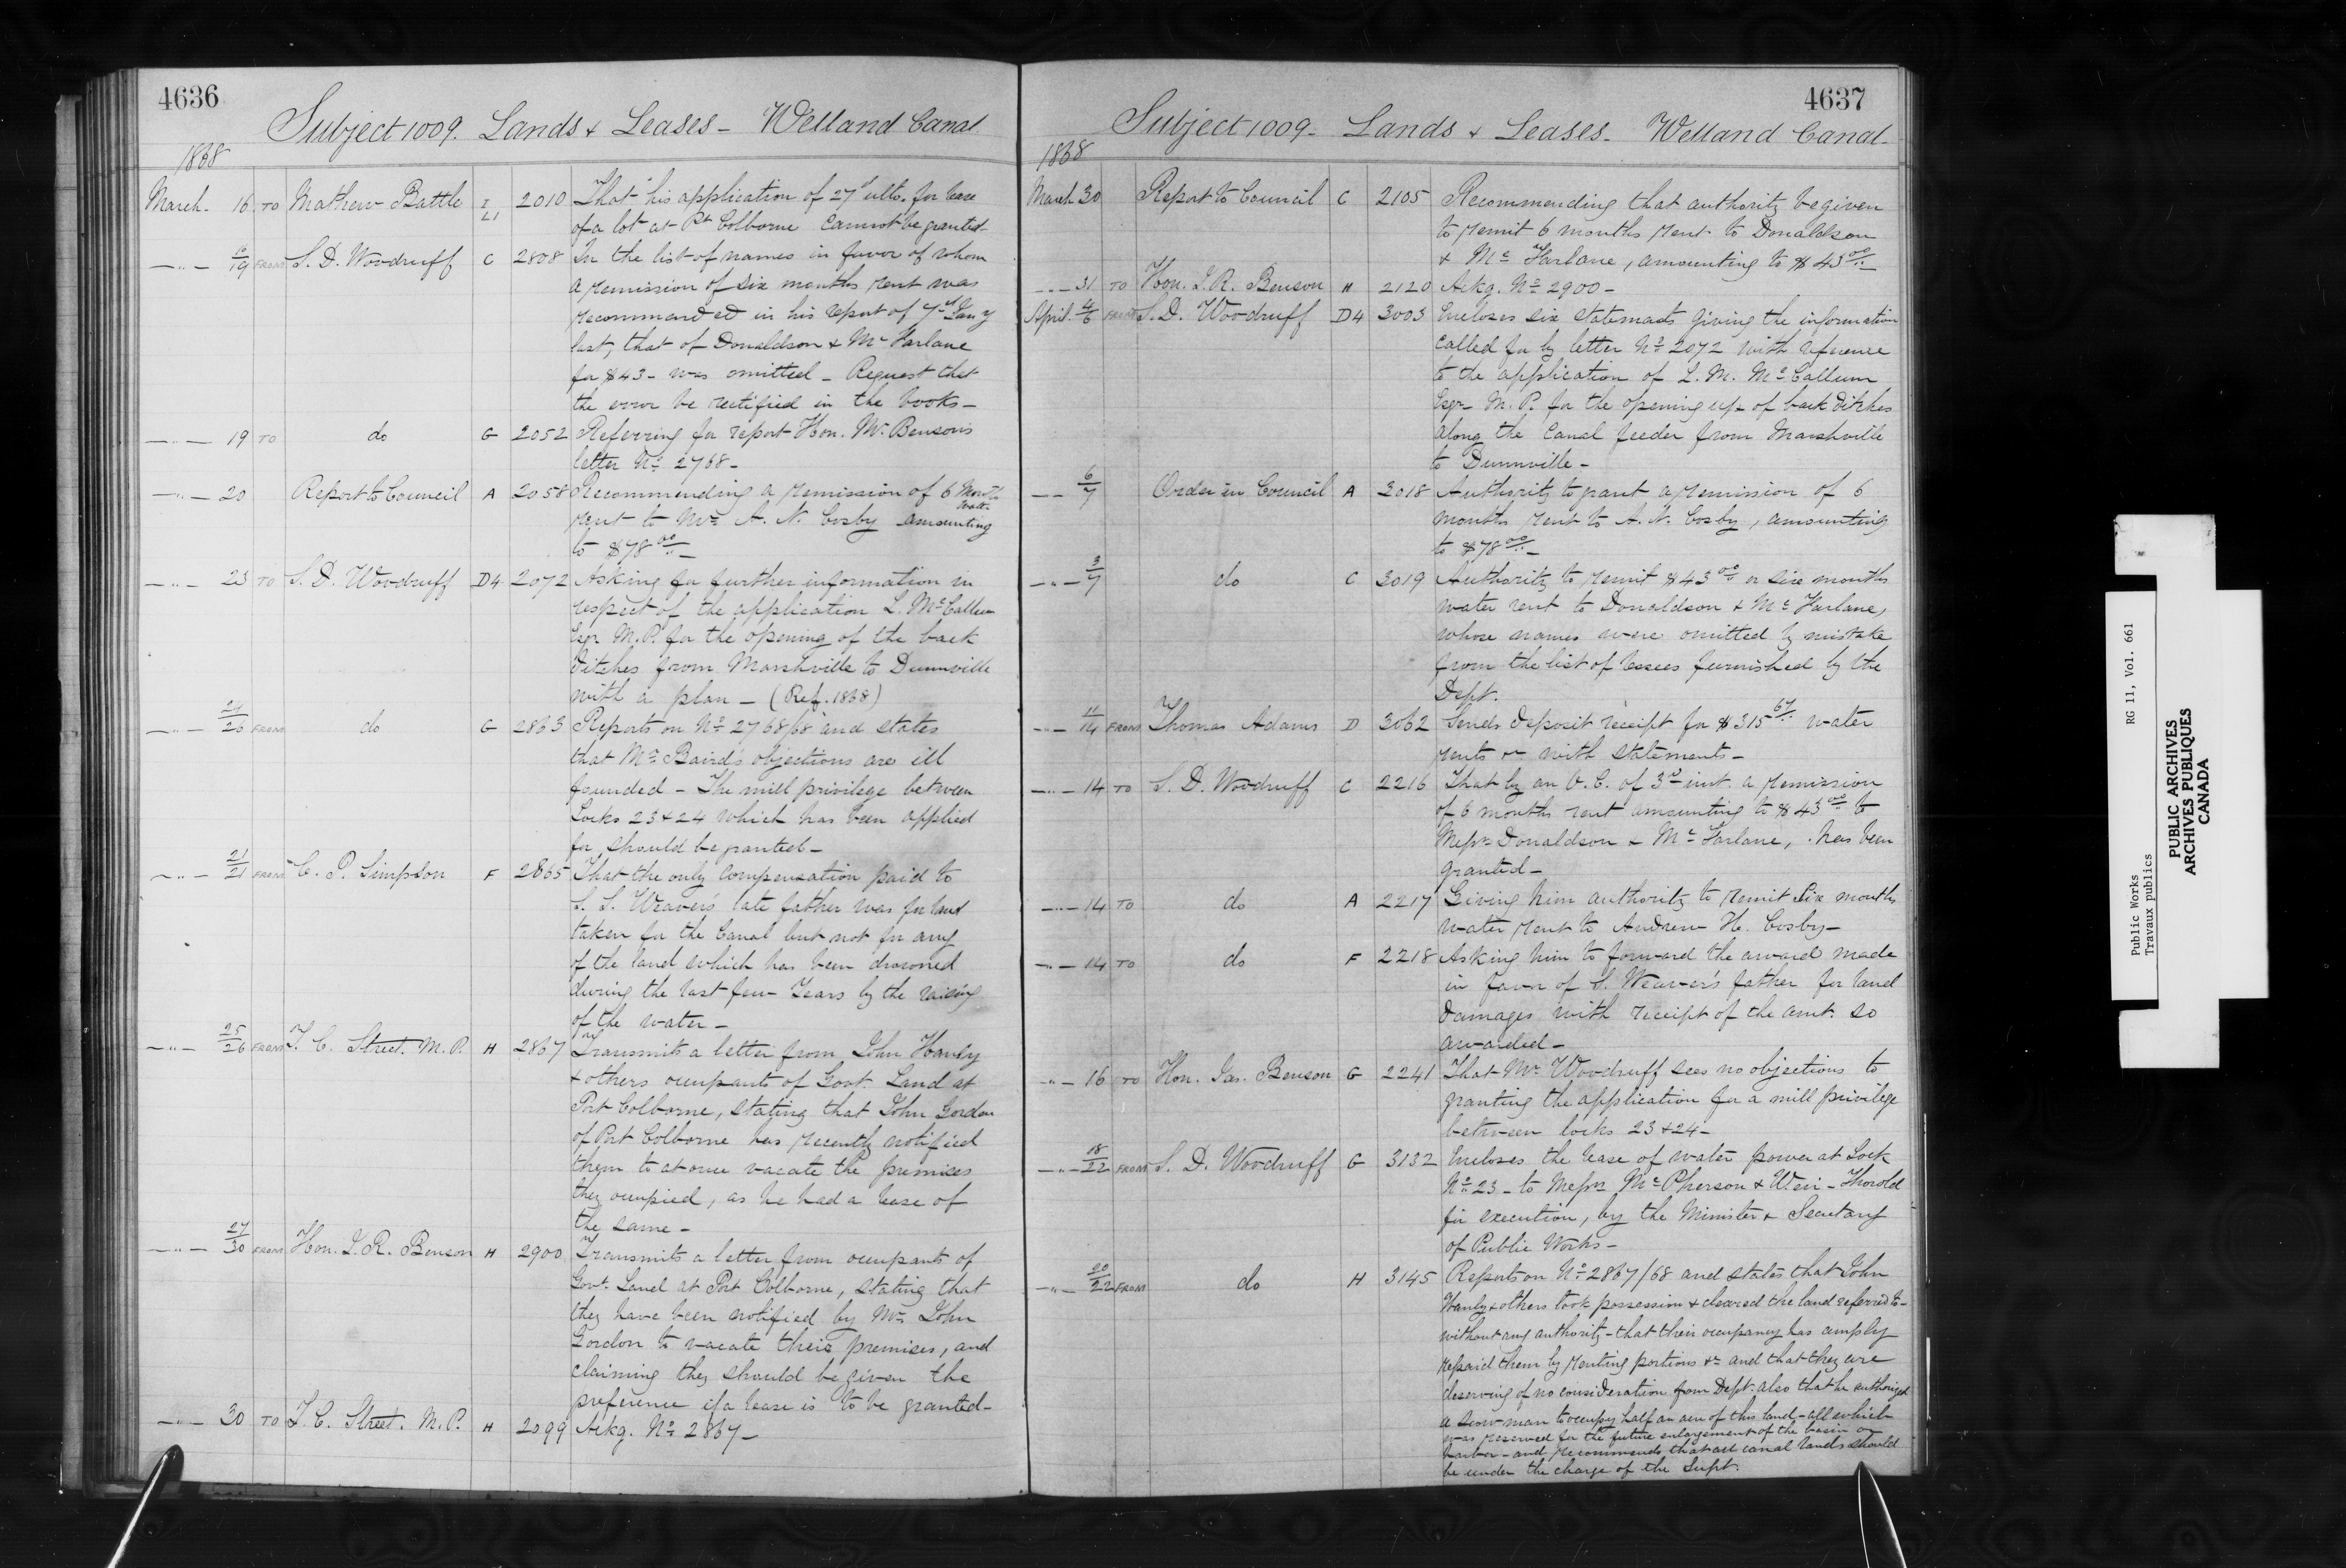 4636
Subject 1009. Lands & Leases - Welland Canal
1868
March 16 TO Mathew Battle I L1 2010 That his application of 27th ulto. for lease
of a lot at Pt Colborne cannot be granted
—"— 16/19 FROM S. D. Woodruff C 2808 In the list of names in favor of whom
a remission of six months rent was
recommended in his report of 7th Jany
last, that of Donaldson & McFarlane
for $43 - was omitted - Request that
the error be rectified in the books -
—"— 19 TO do G 2052 Referring for report Hon. Mr Benson's
letter No 2768 -
—"— 20 Report to Council A 2058 Recommending a remission of 6 months water
rent to Mr A. N. Cosby amounting
to $78 00/.. -
—"— 23 TO S. D. Woodruff D4 2072 Asking for further information in
respect of the application L. McCallum
Esqr M.P. for the opening of the back
ditches from Marshville to Dunnville
with a plan - (Ref. 1868)
—"— 24/26 FROM do G 2863 Reports on No 2768/68 and states
that Mr Baird's objections are ill
founded - The mill privilege between
Locks 23 & 24 which has been applied
for, should be granted -
—"— 21/21 FROM C. P. Simpson F 2865 That the only compensation paid to
S. S. Weaver's late father was for land
taken for the Canal but not for any
of the land which has been drowned
during the last few years by the raising
of the water -
—"— 25/26 FROM T. C. Street. M.P. H 2867 Transmits a letter from John Hanly
& others occupants of Govt. Land at
Port Colborne, stating that John Gordon
of Port Colborne has recently notified
them to at once vacate the premises
they occupied, as he had a lease of
the same -
—"— 27/30 FROM Hon. J. R. Benson H 2900 Transmits a letter from occupants of
Govt. Land at Port Colborne, stating that
they have been notified by Mr John
Gordon to vacate their premises, and
claiming they should be given the
preference if a lease is to be granted -
—"— 30 TO T. C. Street. M.P. H 2099 Ackg. No 2867 -
4637
Subject 1009 - Lands & Leases - Welland Canal -
1868
March 30 Report to Council C 2105 Recommending that authority be given
to remit 6 months rent to Donaldson
& McFarlane, amounting to $43 00/.. -
—"— 31 TO Hon. J. R. Benson H 2120 Ackg. No 2900 -
April 4/6 FROM S. D. Woodruff D4 3003 Encloses six statements giving the information
called for by letter No 2072 with reference
to the application of L. M. McCallum
Esqr M.P. for the opening up of back ditches
along the Canal feeder from Marshville
to Dunnville -
—"— 6/7 Order in Council A 3018 Authority to grant a remission of 6
months rent to A. N. Cosby, amounting
to $78 00/.. -
—"— 3/7 do C 3019 Authority to remit $43 00 or six months
water rent to Donaldson & McFarlane,
whose names were omitted by mistake
from the list of lessees furnished by the
Dept.
—"— 11/14 FROM Thomas Adams D 3062 Sends deposit receipt for $315 67/.. water
rents &c with statements -
—"— 14 TO S. D. Woodruff C 2216 That by an O.C. of 3rd inst. a remission
of 6 months rent amounting to $43 00 to
Messrs Donaldson & McFarlane, has been
granted -
—"— 14 TO do A 2217 Giving him authority to remit six months
water rent to Andrew H. Cosby -
—"— 14 TO do F 2218 Asking him to forward the award made
in favor of S. Weaver's father for land
damages with receipt of the amt. so
awarded -
—"— 16 TO Hon. Jas. Benson G 2241 That Mr Woodruff sees no objections to
granting the application for a mill privilege
between locks 23 & 24 -
—"— 18/22 FROM S. D. Woodruff G 3132 Encloses the lease of water power at Lock
No 23 - to Messrs McPherson & Weir - Thorold
for execution, by the Minister & Secretary
of Public Works -
—"— 20/22 FROM do H 3145 Reports on No 2867/68 and states that John
Hanly & others took possession & cleared the land referred to -
without any authority - that their occupancy has amply
repaid them by renting portions &c and that they are
deserving of no consideration from Dept. also that he authorized
a scow-man to occupy half an acre of this land - all which
was reserved for the future enlargement of the basin or
harbor - and recommends that all canal lands should
be under the charge of the Supt.
Public Works RG 11, Vol. 661
Travaux publics
PUBLIC ARCHIVES
ARCHIVES PUBLIQUES
CANADA